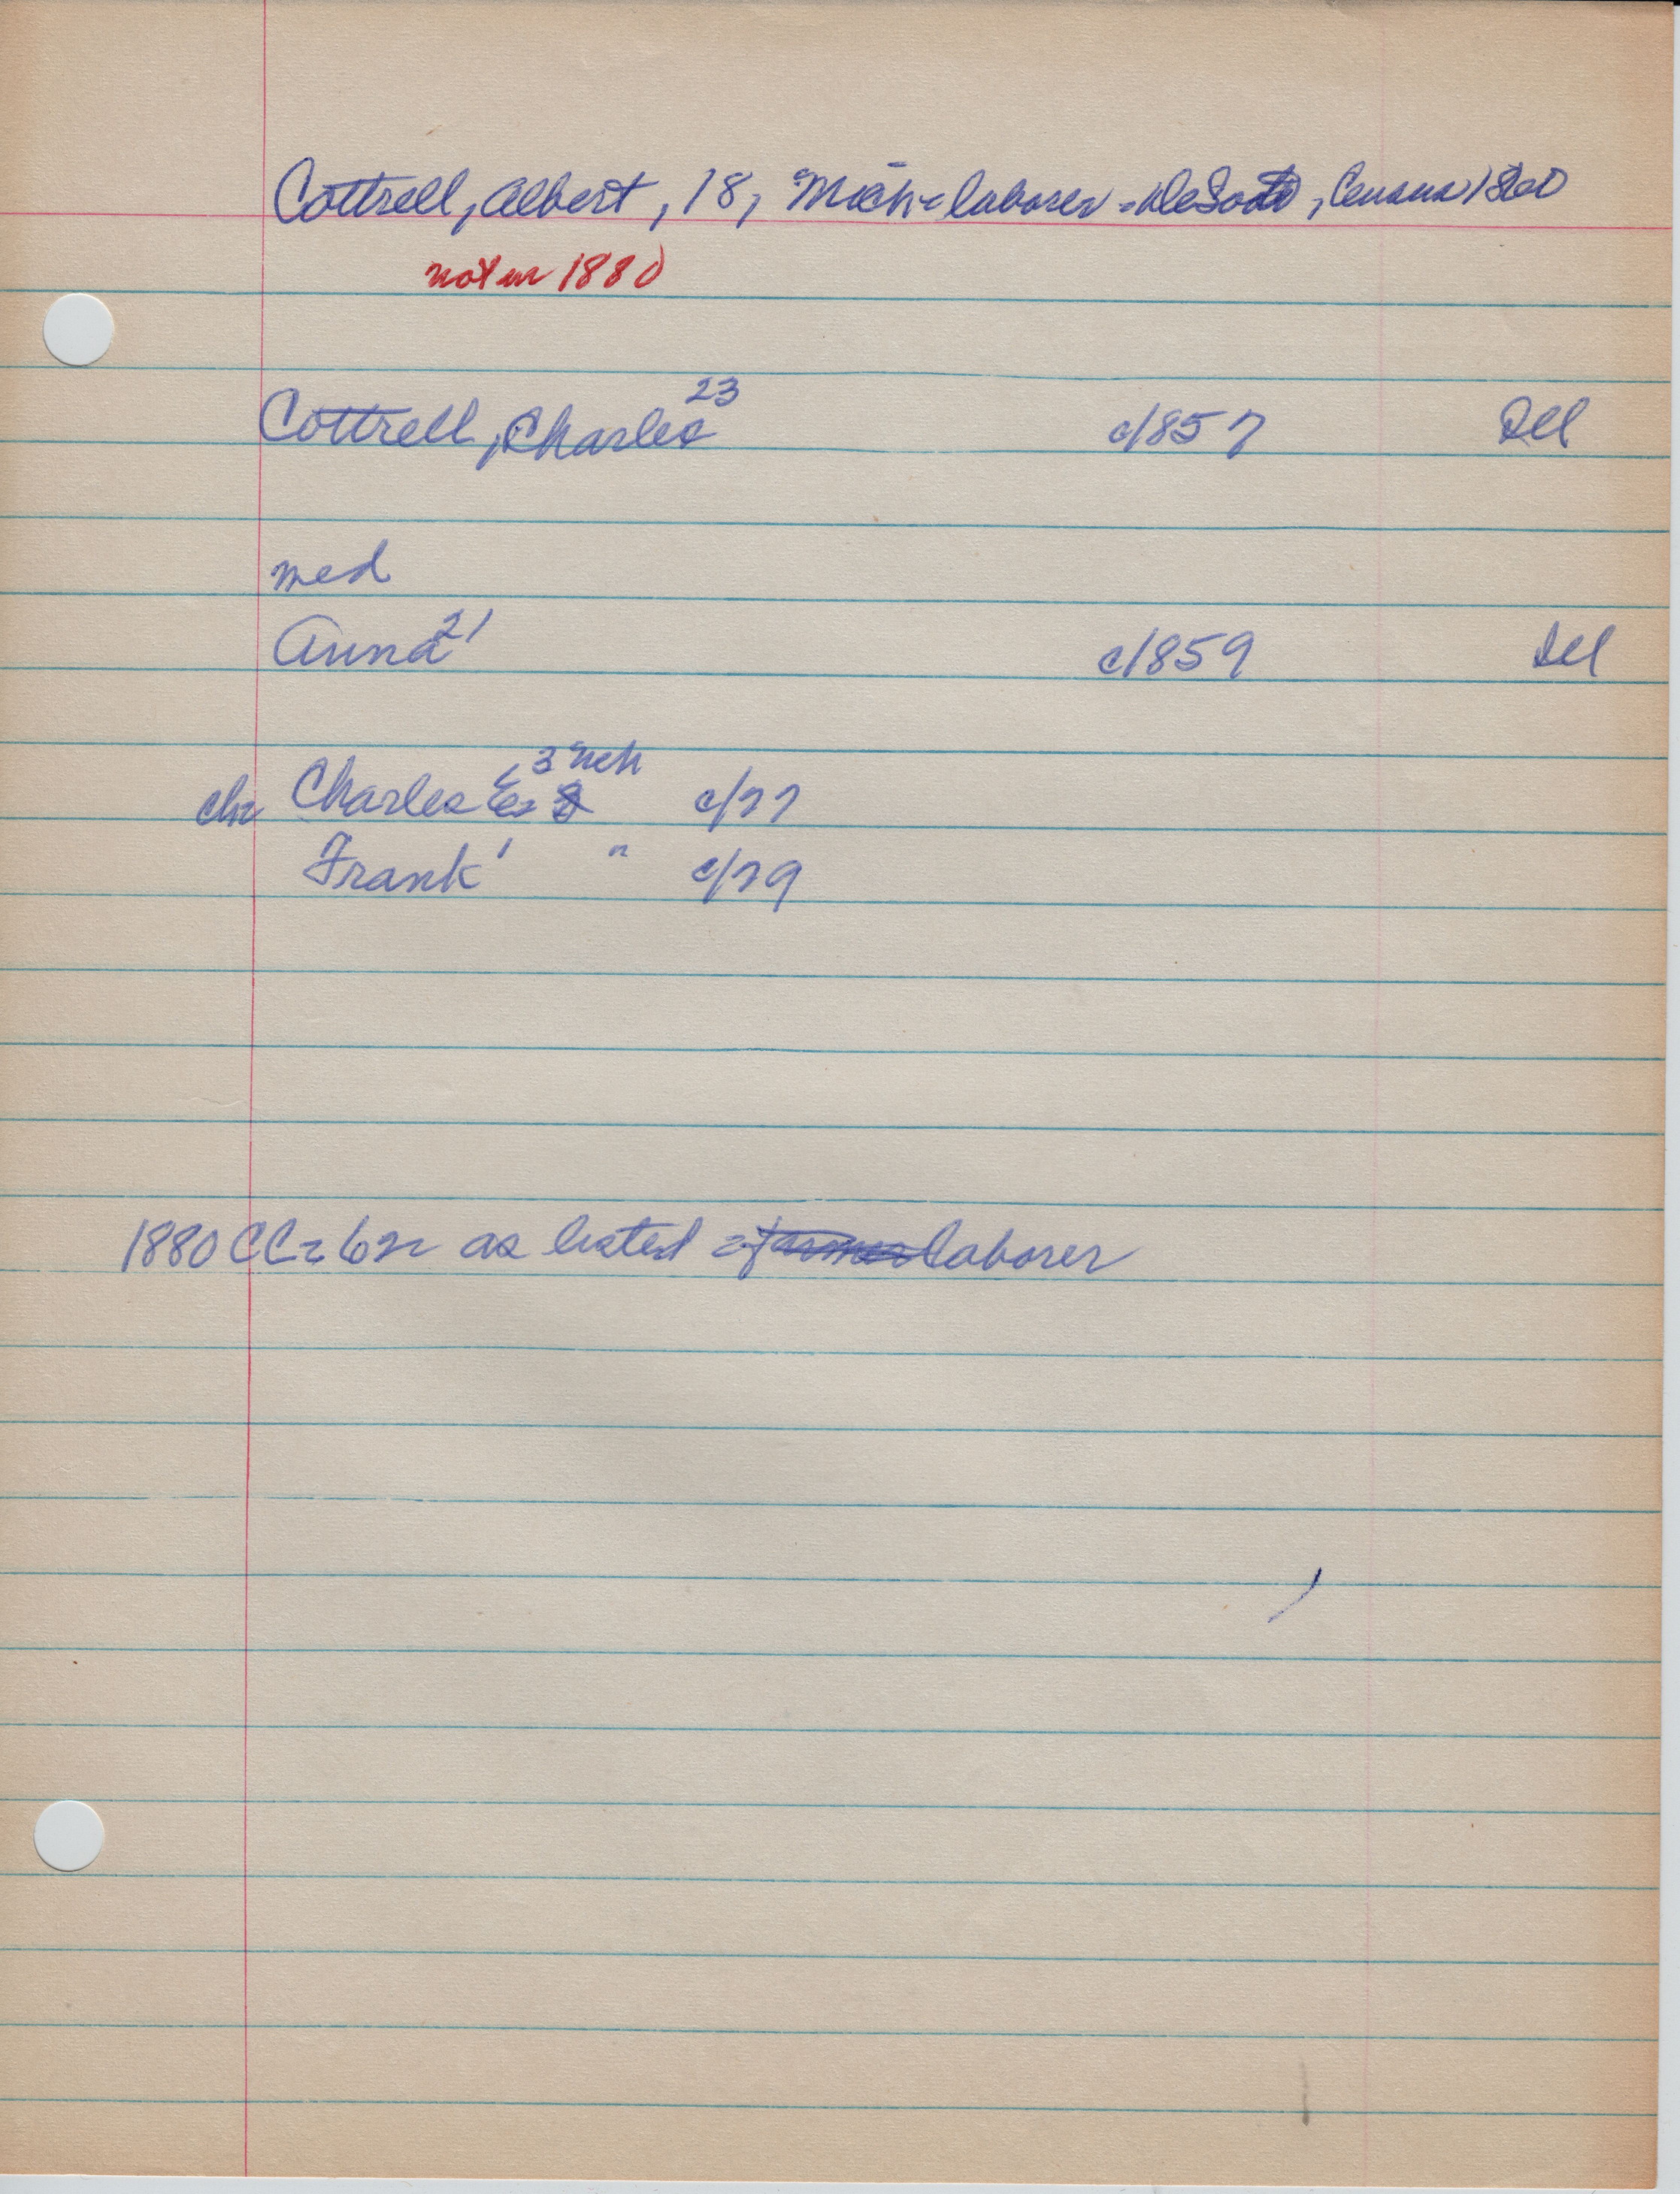 Cottrell, Albert, 18, Mich = laborer - DeSoto, Census 1860
not in 1880
Cottrell, Charles 23 c/857 Ill
med
Anna 21 c/859 Ill
chr Charles E 3 Neb c/77
Frank 1 " c/79
1880 CC = as listed = farmer laborer